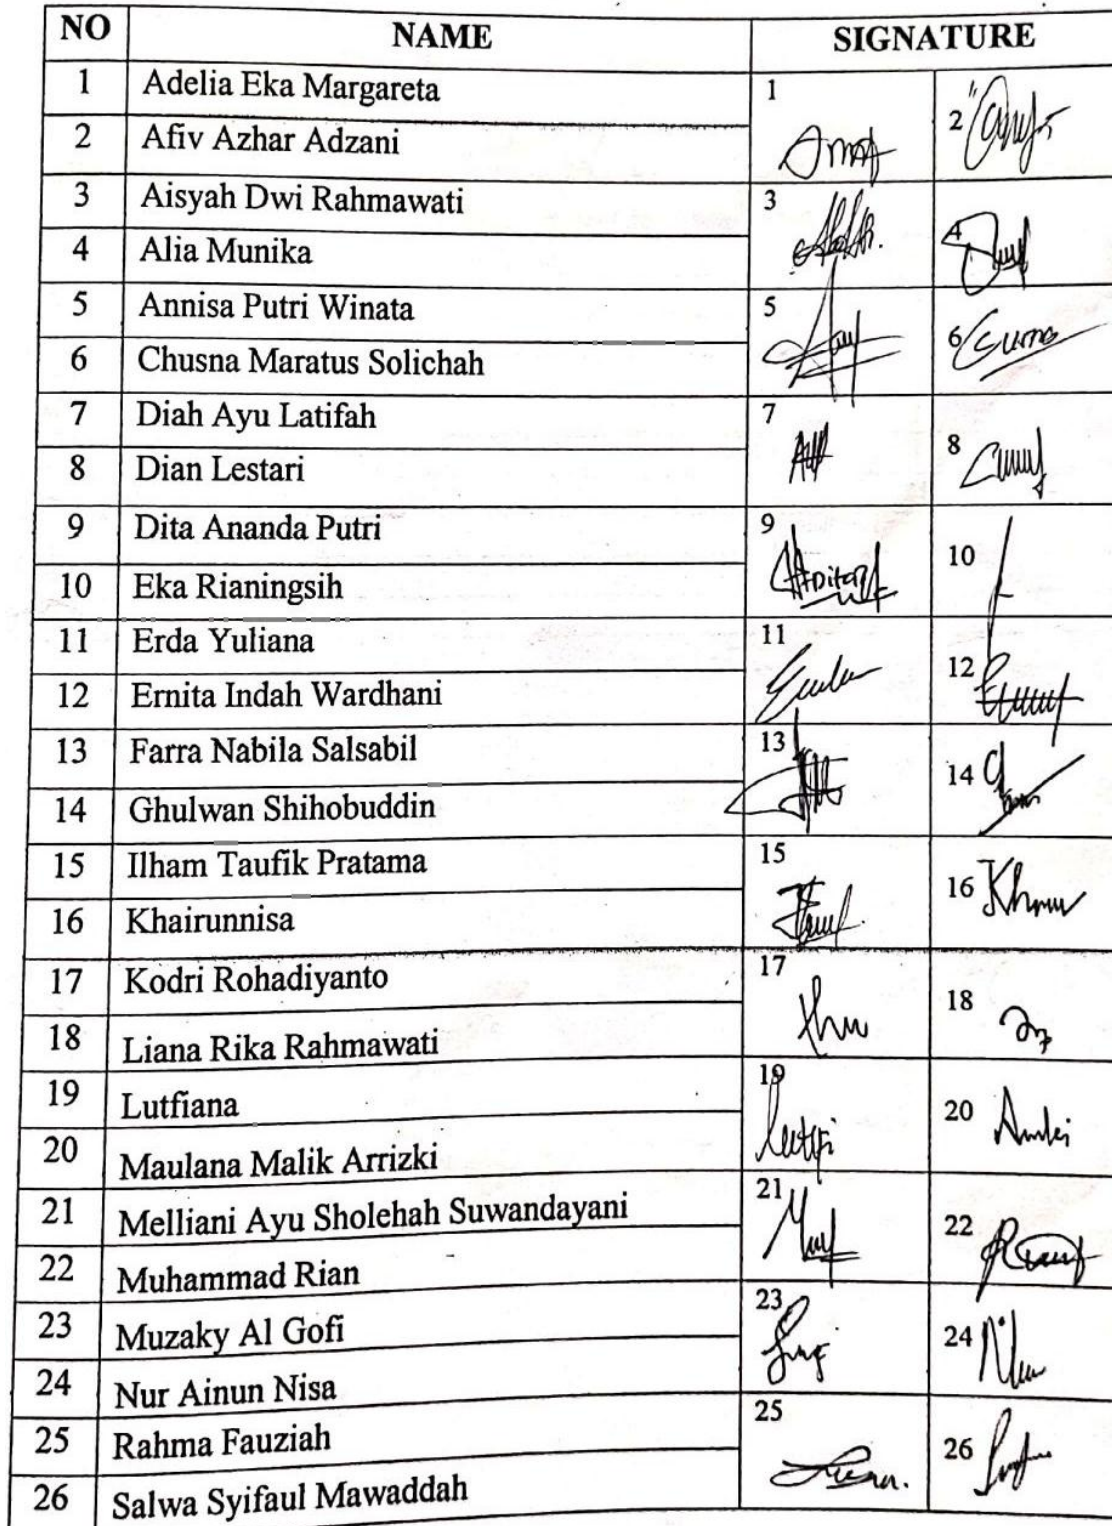 NO NAME SIGNATURE
1 Adelia Eka Margareta 1
2 Afiv Azhar Adzani 2
3 Aisyah Dwi Rahmawati 3
4 Alia Munika 4
5 Annisa Putri Winata 5
6 Chusna Maratus Solichah 6
7 Diah Ayu Latifah 7
8 Dian Lestari 8
9 Dita Ananda Putri 9
10 Eka Rianingsih 10
11 Erda Yuliana 11
12 Ernita Indah Wardhani 12
13 Farra Nabila Salsabil 13
14 Ghulwan Shihobuddin 14
15 Ilham Taufik Pratama 15
16 Khairunnisa 16
17 Kodri Rohadiyanto 17
18 Liana Rika Rahmawati 18
19 Lutfiana 19
20 Maulana Malik Arrizki 20
21 Melliani Ayu Sholehah Suwandayani 21
22 Muhammad Rian 22
23 Muzaky Al Gofi 23
24 Nur Ainun Nisa 24
25 Rahma Fauziah 25
26 Salwa Syifaul Mawaddah 26